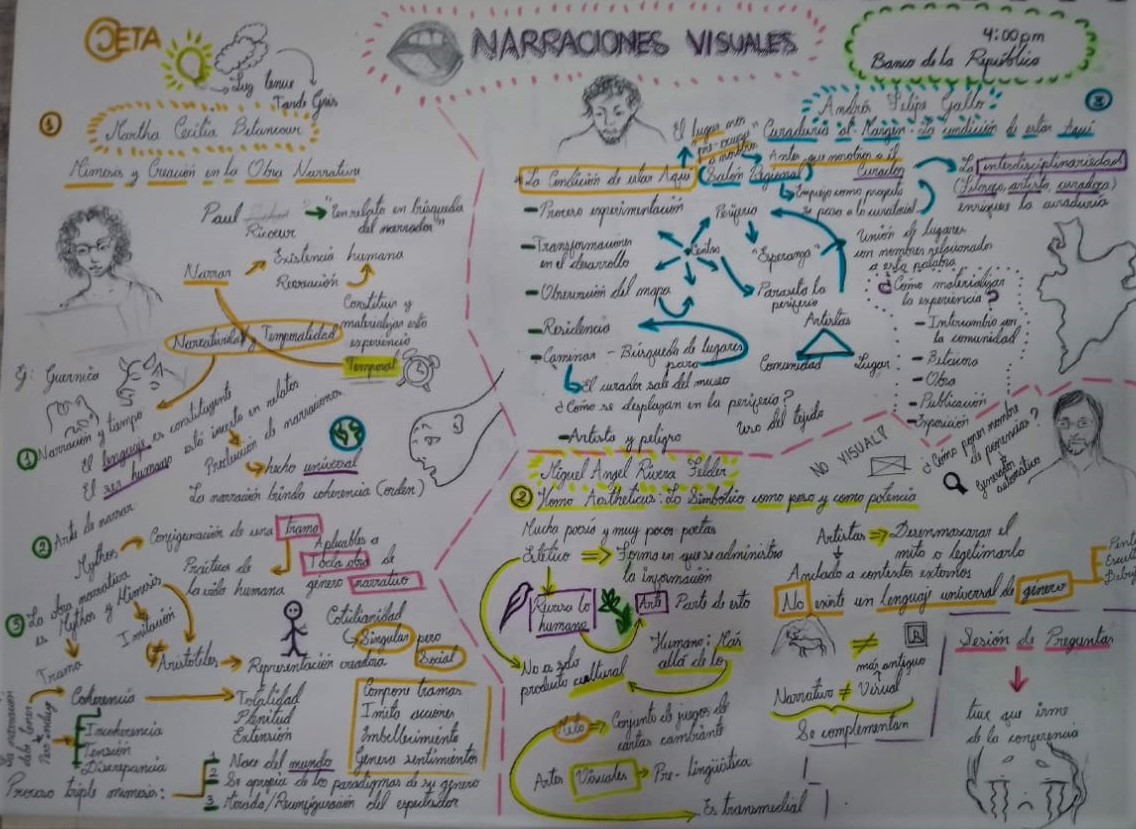 CETA
Luz tenue
Tarde Gris
NARRACIONES VISUALES
4:00pm
Banco de la República
1
Martha Cecilia Betancour
Mimesis y Creación en la Obra Narrativa
Paul Ricoeur → "en relato en búsqueda
del narrador"
Narrar
Existencia humana
Recreación
Constituir y
materializar esta
experiencia
Narratividad y Temporalidad
Temporal
Ej: Guernica
1 Narración y tiempo
El lenguaje es constituyente
El ser humano está inserto en relatos
Producción de narraciones
hecho universal
La narración brinda coherencia (orden)
2 Arte de narrar
Mythos → Configuración de una trama
Práctica de
la vida humana
Aplicables a
Toda obra de
género narrativo
3 La obra narrativa
es Mythos y Mimesis
Imitación
Trama
Aristóteles → Representación creadora
Cotidianidad
Singular pero
Social
La narración
debe tener
Coherencia → Totalidad
Plenitud
Extensión
Incoherencia
Tensión
Discrepancia
Compone tramas
Imita acciones
Embellecimiento
Genera sentimientos
Proceso triple mimesis:
1 Nace del mundo
2 Se apropia de los paradigmas de su género
3 Mirada/Reconfiguración del espectador
3
Andrés Felipe Gallo
Curaduría al Margen: La condición de estar Aquí
El lugar nos
pre-ocupa
a nosotros
La Condición de estar Aquí
(Salón Regional)
Antes que nosotros a él
Curador
Empieza como proyecto
se pasa a lo curatorial
La interdisciplinariedad
(Filósofo, artista, curadora)
enriquece la curaduría
- Proceso experimentación
- Transformaciones
en el desarrollo
- Observación del mapa
- Residencia
- Caminar - Búsqueda de lugares
para
El curador sale del museo
¿Cómo se desplazan en la periferia?
Uso del tejido
- Artista y peligro
Periferia
Centro
"Esperanza"
Parasita la
periferia
Artistas
Comunidad
Lugar
Unión de lugares
con nombres relacionados
a esta palabra
¿Cómo materializar
la experiencia?
- Intercambio con
la comunidad
- Bitácora
- Obra
- Publicación
- Exposición
Miguel Angel Rivera Felder
2 Homo Aestheticus: Lo Simbólico como peso y como potencia
NO VISUAL!
¿Cómo poner nombre
de ponencias?
Generador
automático
Mucha poesía y muy pocos poetas
Estético ⇒ Forma en que se administra
la información
Rebasa lo
humano
Arte Parte de esto
No es solo
producto cultural
Humano: Más
allá de lo
Mito ⇒ Conjunto de juegos de
cartas cambiante
Artes Visuales → Pre-lingüística
Es transmedial
Artistas ⇒ Desenmascarar el
mito o legitimarlo
Anclado a contextos externos
No existe un Lenguaje universal de género
≠
R
más antiguo
Narrativo ≠ Visual
Se complementan
Sesión de Preguntas
tuve que irme
de la conferencia